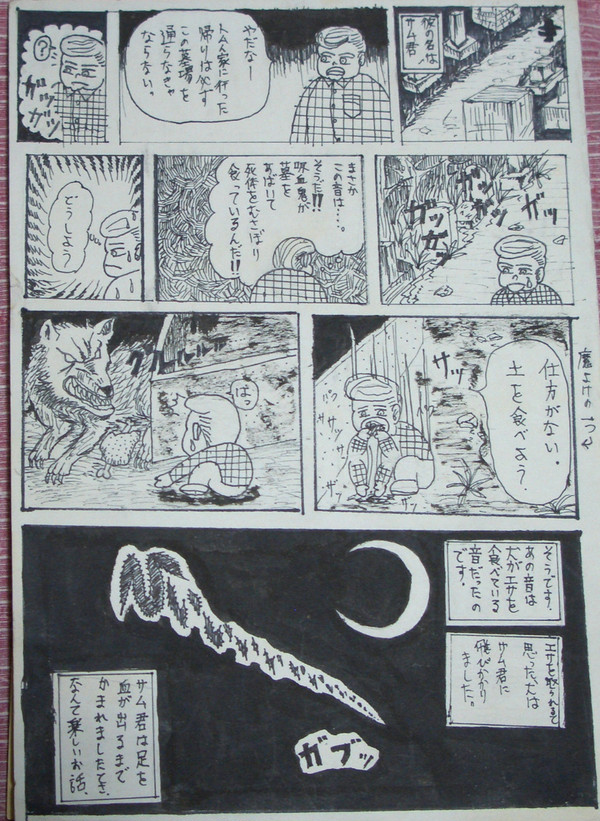 彼の名は
サム君
やだなー
トムん家に行った
帰りは必ず
この墓場を
通らなきゃ
ならない。
?
ガツ
ガツ
ガツ
ガツ
ガツ
ガツ
まさか
この音は…。
そうだ!!
吸血鬼が
墓を
あばいて
死体をむさぼり
食っているんだ!!
どうしよう
魔よけのつもり
仕方がない。
土を食べよう。
サッ
バッ
サッ
サッ
ザッ
ザッ
はっ
グルルル
そうです。
あの音は
犬がエサを
食べている
音だったの
です。
エサを取られると
思った犬は
サム君に
飛びかかり
ました。
ガブッ
サム君は足を
血が出るまで
かまれましたとさ。
なんて楽しいお話。